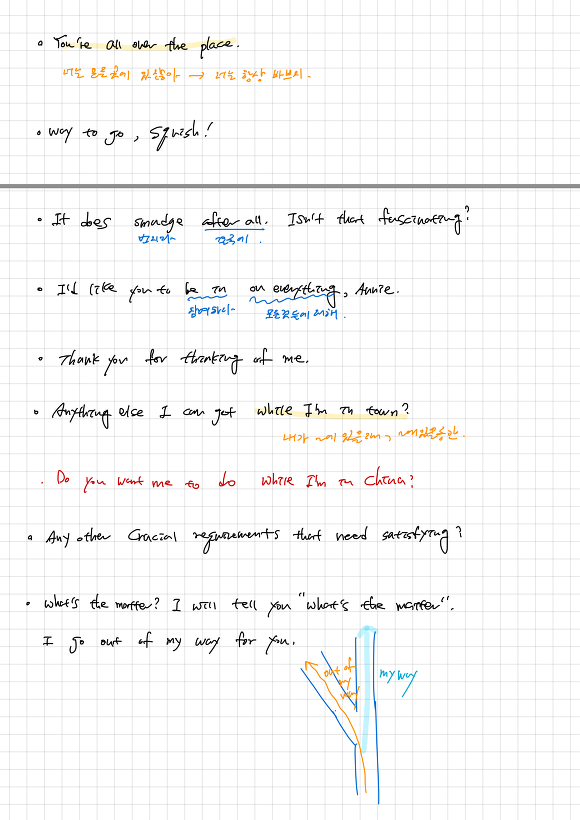 • You're all over the place.
너는 모든곳에 있잖아 → 너는 항상 바쁘지.
• way to go, Squish!
• It does smudge after all. Isn't that fascinating?
번지다 결국에.
• I'd like you to be in on everything, Annie.
참여하다 모든것들에 대해.
• Thank you for thinking of me.
• Anything else I can get while I'm in town?
내가 ~에 있을때, ~에있을동안.
• Do you want me to do while I'm in China?
• Any other Crucial requirements that need satisfying?
• what's the matter? I will tell you "what's the matter".
I go out of my way for you.
out of
my
way
my way